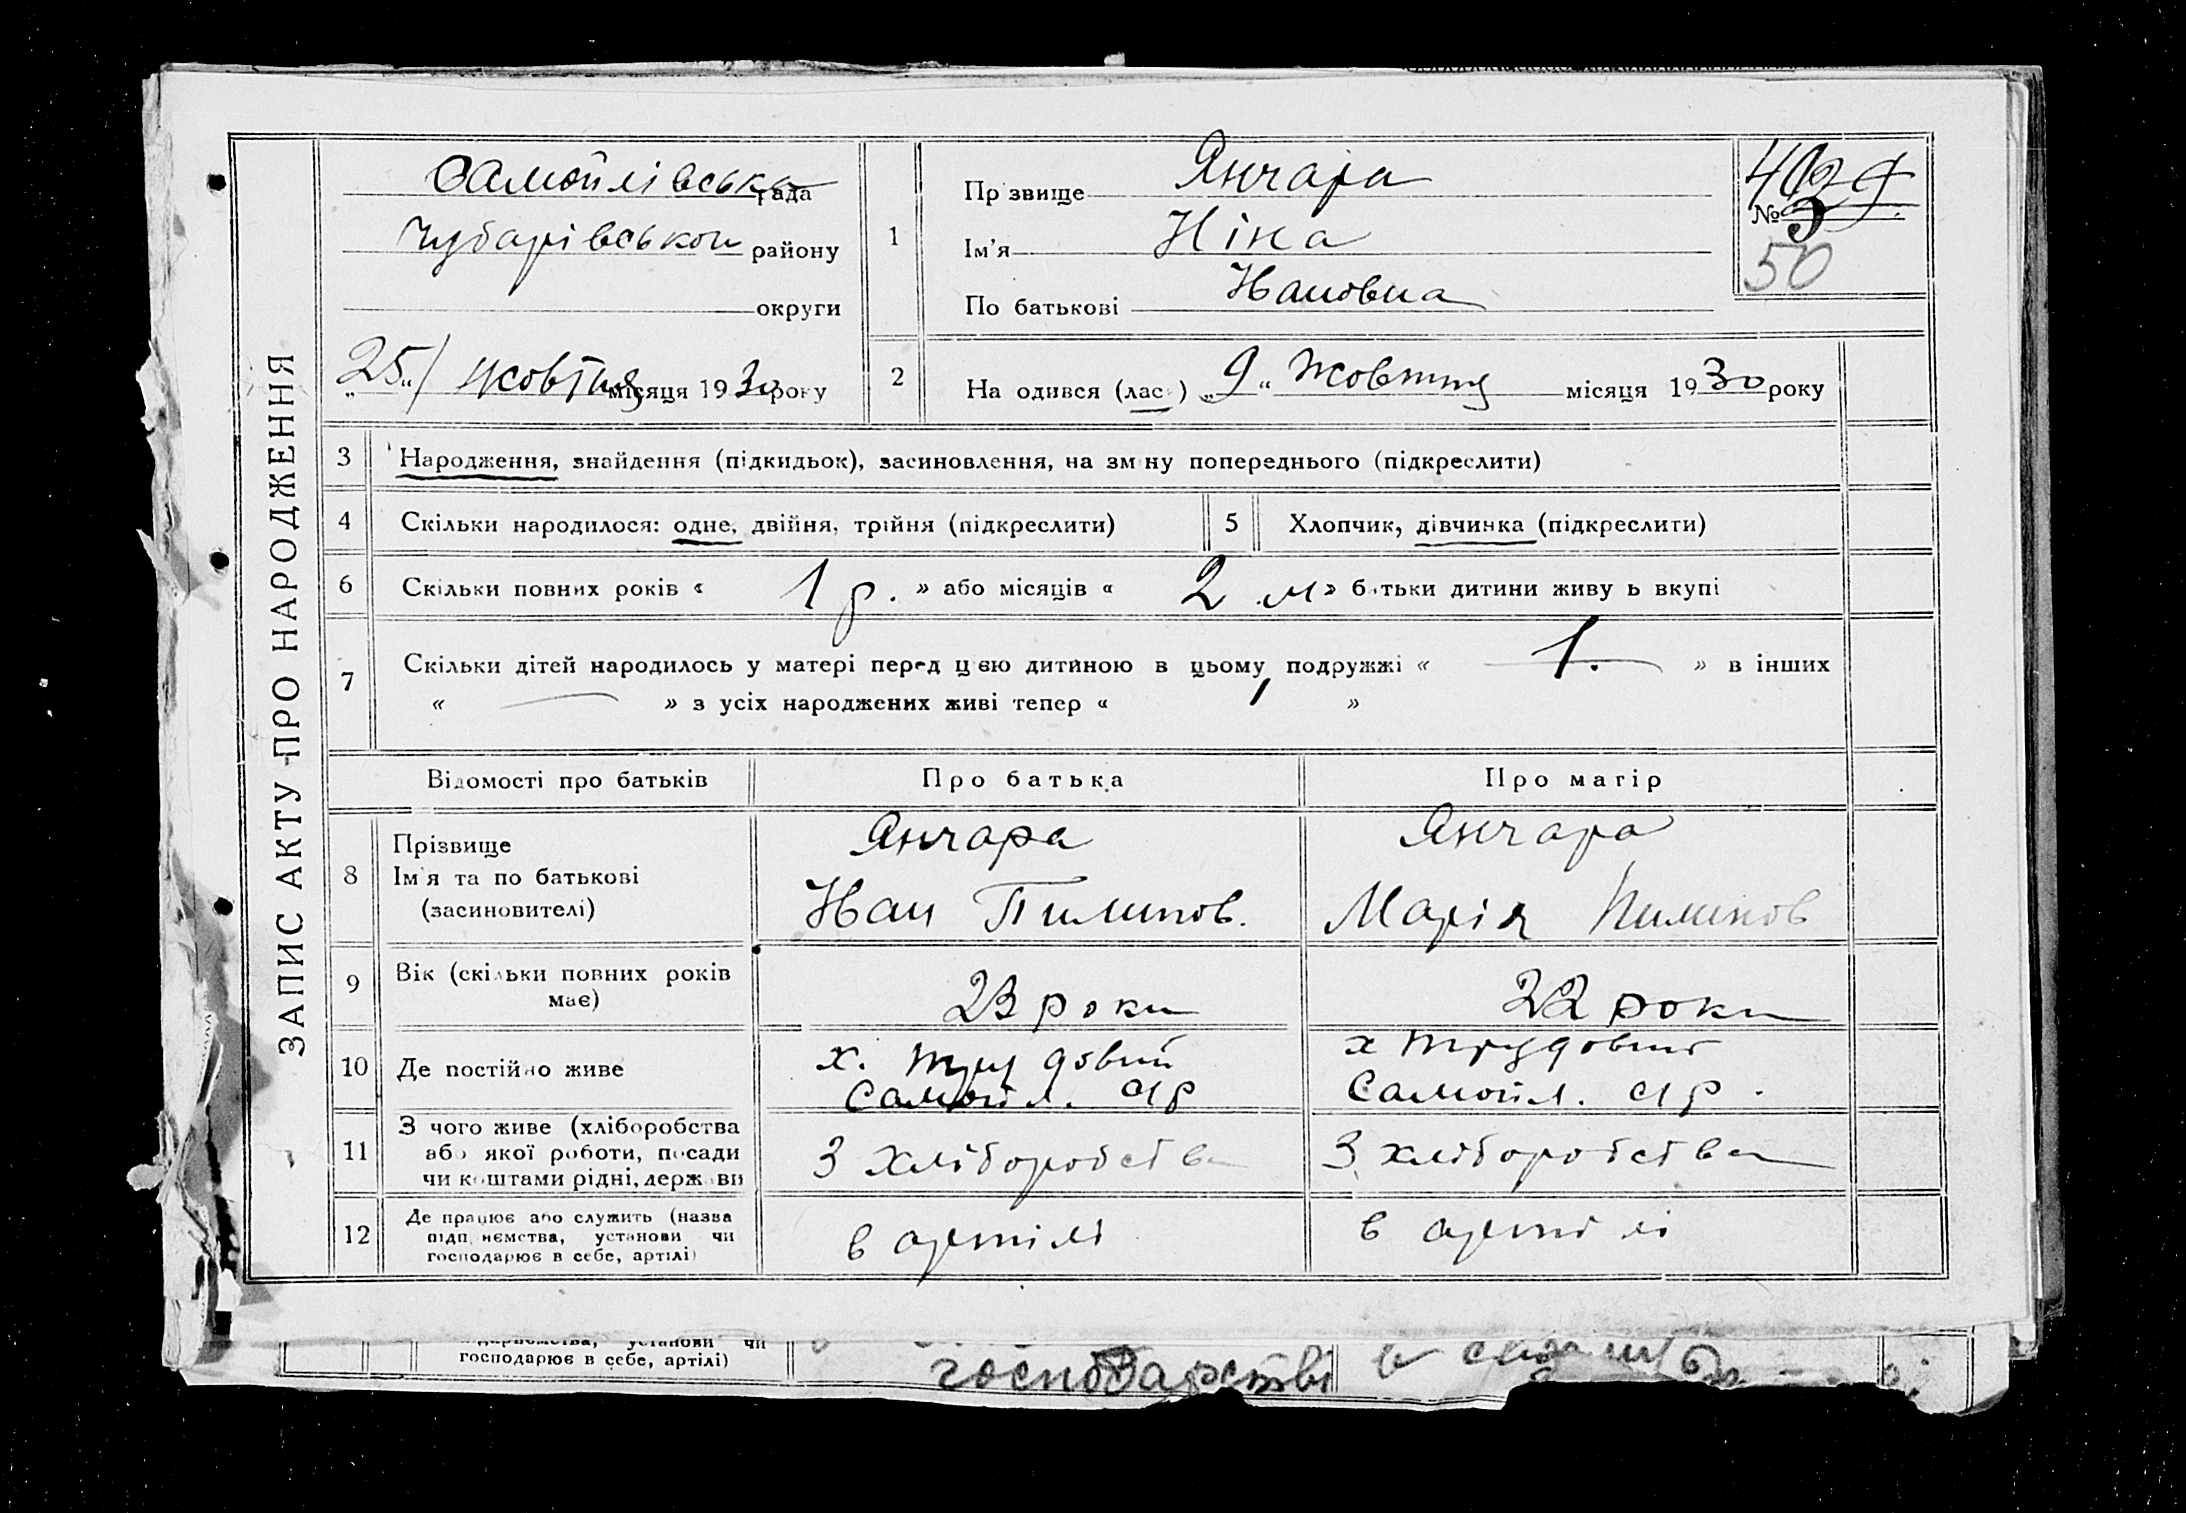 ЗАПИС АКТУ ПРО НАРОДЖЕННЯ
Самойлівська рада
Чубарівського району
округи
„25“ жовтня місяця 1930 року
1
Прізвище Янчара
Ім'я Ніна
По батькові Івановна
№ 3
50
2
Народився (лась) „9“ жовтня місяця 1930 року
3 Народження, знайдення (підкидьок), засиновлення, на зміну попереднього (підкреслити)
4 Скільки народилося: одне, двійня, трійня (підкреслити)
5 Хлопчик, дівчинка (підкреслити)
6 Скільки повних років « 1 р. » або місяців « 2 м » батьки дитини живуть вкупі
7 Скільки дітей народилось у матері перед цією дитиною в цьому подружжі « 1. » в інших
« — » з усіх народжених живі тепер « 1 »
Відомості про батьків Про батька Про матір
8 Прізвище
Ім'я та по батькові
(засиновителі)
Янчара
Іван Пилипов.
Янчара
Марія Пилипов
9 Вік (скільки повних років
має)
23 роки
22 роки
10 Де постійно живе
х. Трудовий
Самойл. с/р
х Трудовий
Самойл. с/р.
11 З чого живе (хліборобства
або якої роботи, посади
чи коштами рідні, держави
З хліборобства
З хліборобства
12 Де працює або служить (назва
підприємства, установи чи
господарює в себе, артілі)
в артілі
в артілі
установи чи
господарює в себе, артілі)
господарстві